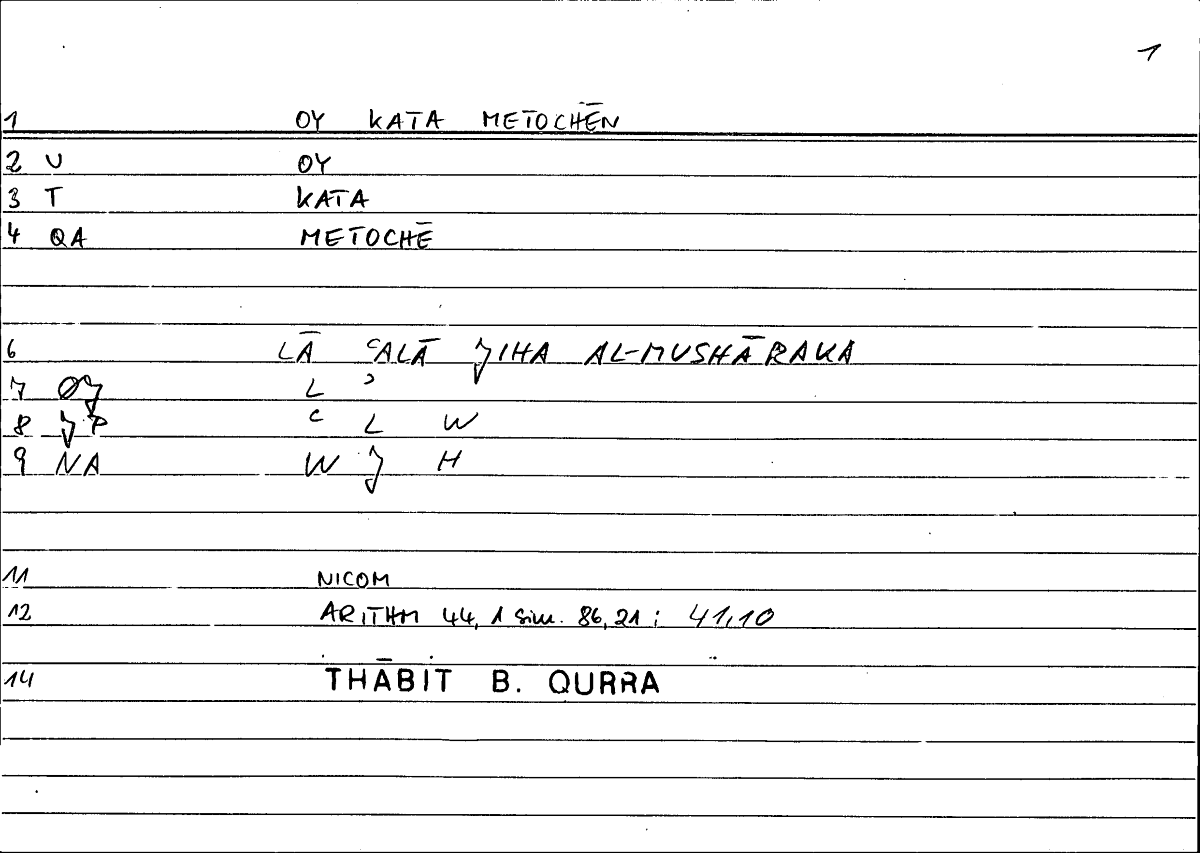 1
1 OY KATA METOCHĒN
2 U OY
3 T KATA
4 QA METOCHĒ
6 LĀ ʿALĀ JIHA AL-MUSHĀRAKA
7 ØJ L ʾ
8 JP ʿ L W
9 NA W J H
11 NICOM
12 ARITHM 44,1 sim. 86,21; 41,10
14 THĀBIT B. QURRA